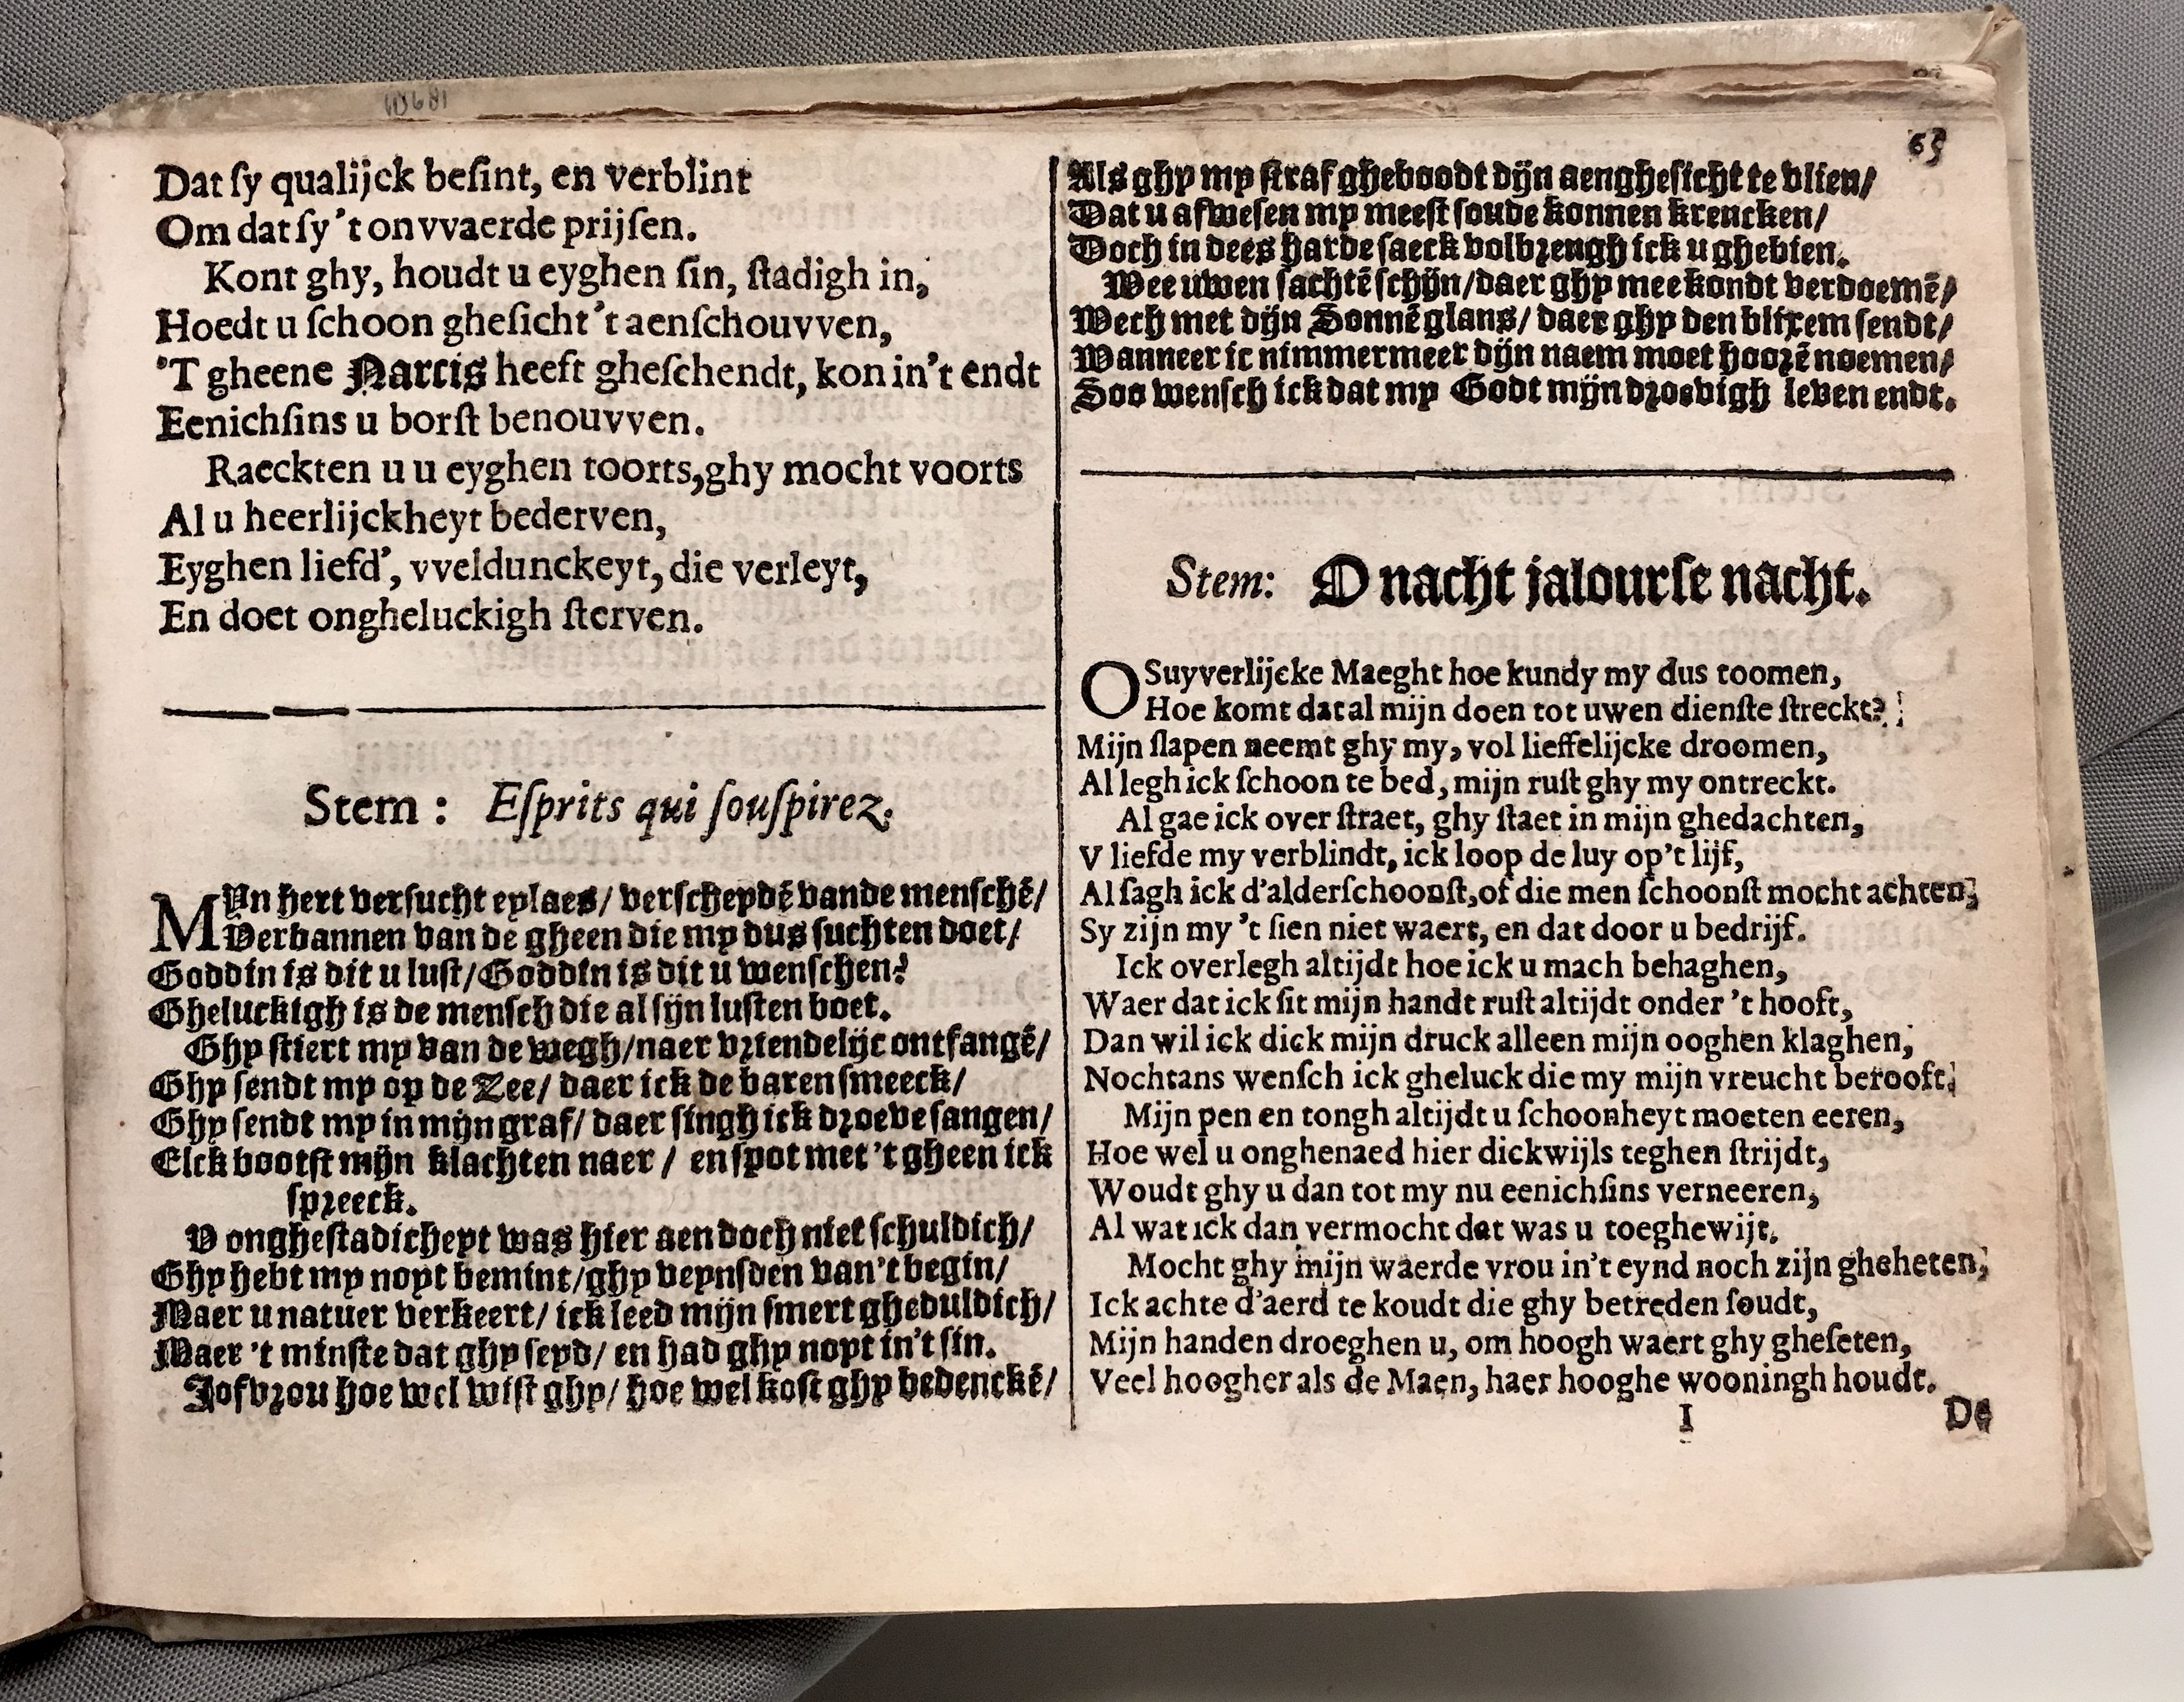 65
Dat ſy qualijck beſint, en verblint
Om dat ſy 't onvvaerde prijſen.
Kont ghy, houdt u eyghen ſin, ſtadigh in,
Hoedt u ſchoon gheſicht 't aenſchouvven,
'T gheene Narcis heeft gheſchendt, kon in't endt
Eenichſins u borſt benouvven.
Raeckten u u eyghen toorts, ghy mocht voorts
Al u heerlijckheyt bederven,
Eyghen liefd', vveldunckeyt, die verleyt,
En doet ongheluckigh ſterven.
Stem : Eſprits qui ſouſpirez.
MYn hert verſucht eylaes/ verſcheydē vande menſchē/
Verbannen van de gheen die my dus ſuchten doet/
Goddin is dit u luſt/ Goddin is dit u wenſchen?
Gheluckigh is de menſch die al ſijn luſten boet.
Ghy ſtiert my van de wegh/ naer vriendelijc ontfangē/
Ghy ſendt my op de Zee/ daer ick de baren ſmeeck/
Ghy ſendt my in mijn graf/ daer ſingh ick droeve ſangen/
Elck bootſt mijn klachten naer / en ſpot met 't gheen ick
ſpreeck.
V ongheſtadicheyt was hier aen doch niet ſchuldich/
Ghy hebt my noyt bemint/ ghy veynſden van't begin/
Maer u natuer verkeert/ ick leed mijn ſmert gheduldich/
Maer 't minſte dat ghy ſeyd/ en had ghy noyt in't ſin.
Jofvrou hoe wel wiſt ghy/ hoe wel koſt ghy bedenckē/
Als ghy my ſtraf gheboodt dijn aengheſicht te vlien/
Dat u afweſen my meeſt ſoude konnen krencken/
Doch in dees harde ſaeck volbrengh ick u ghebien.
Wee uwen ſachtē ſchijn/ daer ghy mee kondt verdoemē/
Wech met dijn Sonnē glans/ daer ghy den blixem ſendt/
Wanneer ic nimmermeer dijn naem moet hoorē noemen/
Soo wenſch ick dat my Godt mijn droevigh leven endt.
Stem: O nacht jalourſe nacht.
O Suyverlijcke Maeght hoe kundy my dus toomen,
Hoe komt dat al mijn doen tot uwen dienſte ſtreckt?
Mijn ſlapen neemt ghy my, vol lieffelijcke droomen,
Al legh ick ſchoon te bed, mijn ruſt ghy my ontreckt.
Al gae ick over ſtraet, ghy ſtaet in mijn ghedachten,
V liefde my verblindt, ick loop de luy op't lijf,
Al ſagh ick d'alderſchoonſt, of die men ſchoonſt mocht achten,
Sy zijn my 't ſien niet waert, en dat door u bedrijf.
Ick overlegh altijdt hoe ick u mach behaghen,
Waer dat ick ſit mijn handt ruſt altijdt onder 't hooft,
Dan wil ick dick mijn druck alleen mijn ooghen klaghen,
Nochtans wenſch ick gheluck die my mijn vreucht berooft,
Mijn pen en tongh altijdt u ſchoonheyt moeten eeren,
Hoe wel u onghenaed hier dickwijls teghen ſtrijdt,
Woudt ghy u dan tot my nu eenichſins verneeren,
Al wat ick dan vermocht dat was u toeghewijt.
Mocht ghy mijn waerde vrou in't eynd noch zijn gheheten,
Ick achte d'aerd te koudt die ghy betreden ſoudt,
Mijn handen droeghen u, om hoogh waert ghy gheſeten,
Veel hoogher als de Maen, haer hooghe wooningh houdt.
I
De